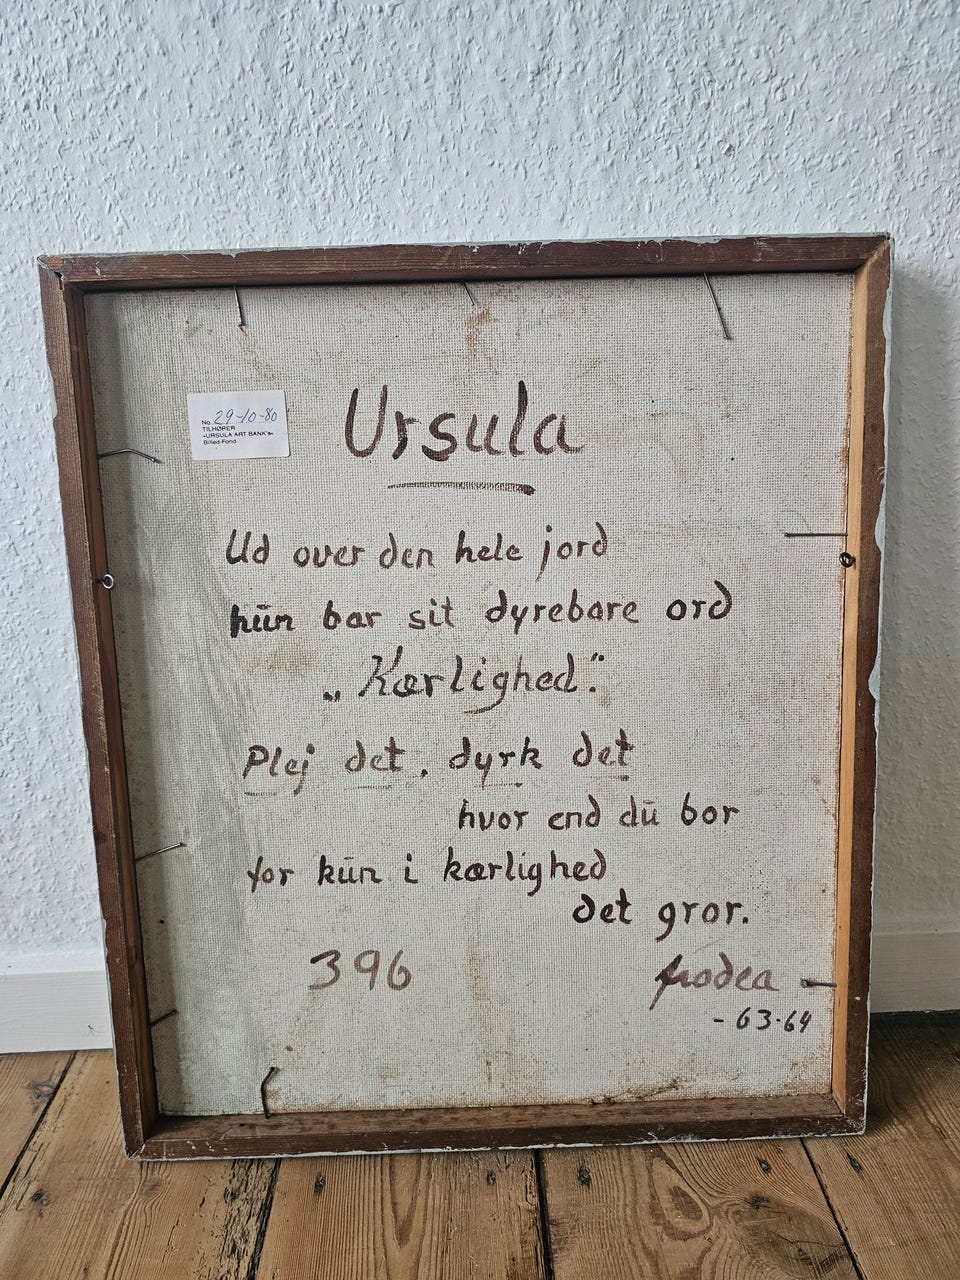 No. 29-10-80
TILHØRER
»URSULA ART BANK's«
Billed-Fond
Ursula
Ud over den hele jord
hūn bar sit dyrebare ord
„Kærlighed."
Plej det, dyrk det
hvor end dū bor
for kūn i kærlighed
det gror.
396
frodea
- 63-64